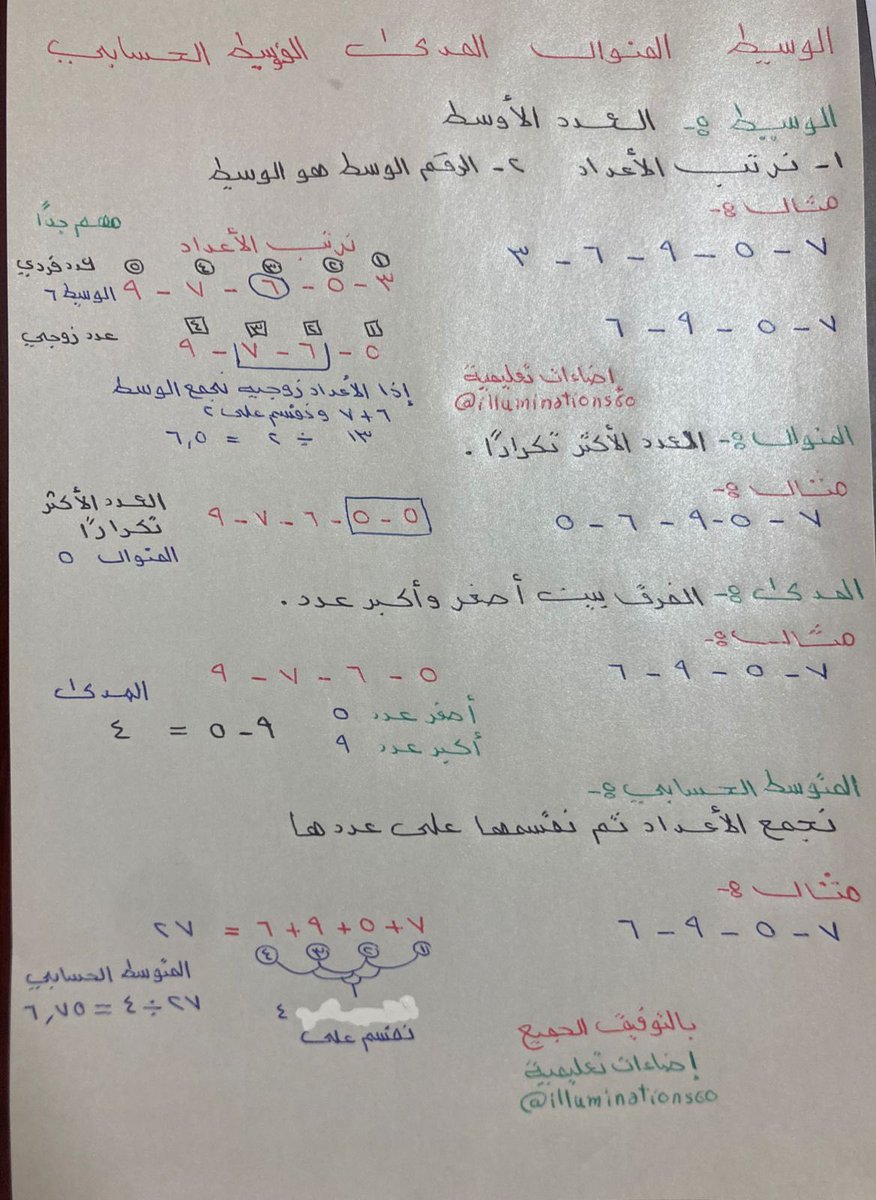 الوسيط المنوال المدى الوسيط الحسابي
الوسيط :- العدد الأوسط
١- نرتب الأعداد ٢- الرقم الوسط هو الوسيط
مثال :-
مهم جداً
نرتب الأعداد
٧ - ٥ - ٩ - ٦ - ٣
١ ٢ ٣ ٤ ٥ عدد فردي
٣ - ٥ - ٦ - ٧ - ٩ الوسيط ٦
٧ - ٥ - ٩ - ٦
١ ٢ ٣ ٤ عدد زوجي
٥ - ٦ - ٧ - ٩
إضاءات تعليمية
@illuminations60
إذا الأعداد زوجيه نجمع الوسط
٦+٧ ونقسم على ٢
١٣ ÷ ٢ = ٦,٥
المنوال :- العدد الأكثر تكرارًا .
مثال :-
٧ - ٥ - ٩ - ٦ - ٥
٥ - ٥ - ٦ - ٧ - ٩
العدد الأكثر
تكرارًا
المنوال ٥
المدى :- الفرق بين أصغر وأكبر عدد .
مثال :-
٧ - ٥ - ٩ - ٦
٥ - ٦ - ٧ - ٩
أصغر عدد ٥
أكبر عدد ٩
المدى
٩ - ٥ = ٤
المتوسط الحسابي :-
نجمع الأعداد ثم نقسمها على عددها
مثال :-
٧ - ٥ - ٩ - ٦
٧+٥+٩+٦ = ٢٧
١ ٢ ٣ ٤
نقسم على ٤
المتوسط الحسابي
٢٧ ÷ ٤ = ٦,٧٥
بالتوفيق الجميع
إضاءات تعليمية
@illuminations60